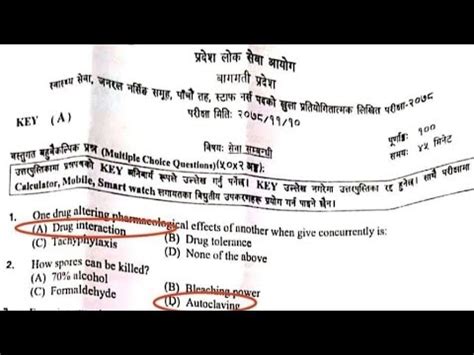 प्रदेश लोक सेवा आयोग
बागमती प्रदेश
स्वास्थ्य सेवा, जनरल नर्सिङ्ग समूह, पाँचौं तह, स्टाफ नर्स पदको खुल्ला प्रतियोगितात्मक लिखित परीक्षा-२०७८
परीक्षा मिति: २०७८/११/१०
KEY (A)
पूर्णाङ्क: १००
विषय: सेवा सम्बन्धी
समय: ४५ मिनेट
वस्तुगत बहुवैकल्पिक प्रश्न (Multiple Choice Questions)(५०x२ अङ्क):
उत्तरपुस्तिकामा प्रश्नपत्रको KEY अनिवार्य रूपले उल्लेख गर्नु पर्नेछ। KEY उल्लेख नगरेमा उत्तरपुस्तिका रद्द हुनेछ। साथै परीक्षामा
Calculator, Mobile, Smart watch लगायतका विद्युतीय उपकरणहरू प्रयोग गर्न पाइने छैन।
1. One drug altering pharmacological effects of another when give concurrently is:
(A) Drug interaction (B) Drug tolerance
(C) Tachyphylaxis (D) None of the above
2. How spores can be killed?
(A) 70% alcohol (B) Bleaching power
(C) Formaldehyde (D) Autoclaving